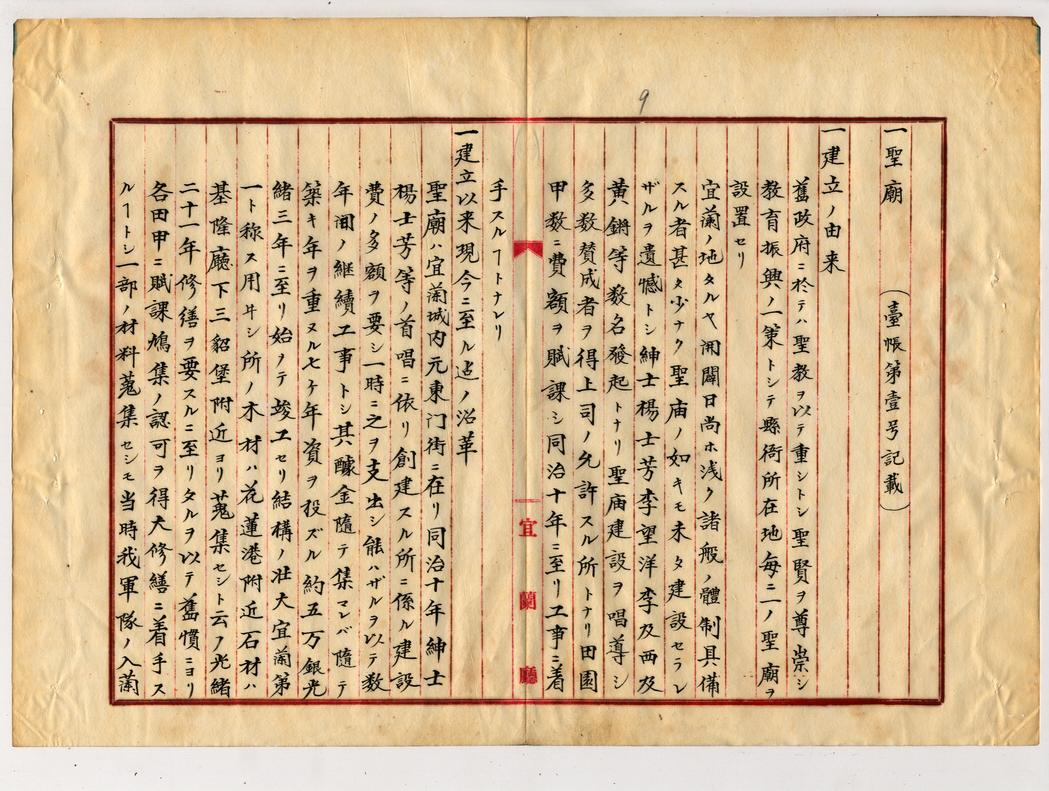 9
一聖廟　　　（臺帳第壹号記載）
一建立ノ由来
舊政府ニ於テハ聖教ヲ以テ重シトシ聖賢ヲ尊崇シ
教育振興ノ一策トシテ縣衙所在地毎ニ一ノ聖廟ヲ
設置セリ
宜蘭ノ地タルヤ開闢日尚ホ浅ク諸般ノ體制具備
スル者甚タ少ナク聖廟ノ如キモ未タ建設セラレ
ザルヲ遺憾トシ紳士楊士芳李望洋李及西及
黄鏘等数名發起トナリ聖廟建設ヲ唱導シ
多数賛成者ヲ得上司ノ允許スル所トナリ田園
甲数ニ費額ヲ賦課シ同治十年ニ至リ工事ニ着
手スルヿトナレリ
宜蘭廳
一建立以来現今ニ至ル迄ノ沿革
聖廟ハ宜蘭城内元東门街ニ在リ同治十年紳士
楊士芳等ノ首唱ニ依リ創建スル所ニ係ル建設
費ノ多額ヲ要シ一時ニ之ヲ支出シ能ハザルヲ以テ数
年间ノ継續工事トシ其醵金隨テ集マレバ隨テ
築キ年ヲ重ヌル七ケ年資ヲ投ズル約五万銀光
緒三年ニ至リ始メテ竣工セリ結構ノ壮大宜蘭第
一ト称ス用ヰシ所ノ木材ハ花蓮港附近石材ハ
基隆廳下三貂堡附近ヨリ蒐集セシト云フ光緒
二十一年修繕ヲ要スルニ至リタルヲ以テ舊慣ニヨリ
各田甲ニ賦課鳩集ノ認可ヲ得大修繕ニ着手ス
ルヿトシ一部ノ材料蒐集セシモ当時我軍隊ノ入蘭